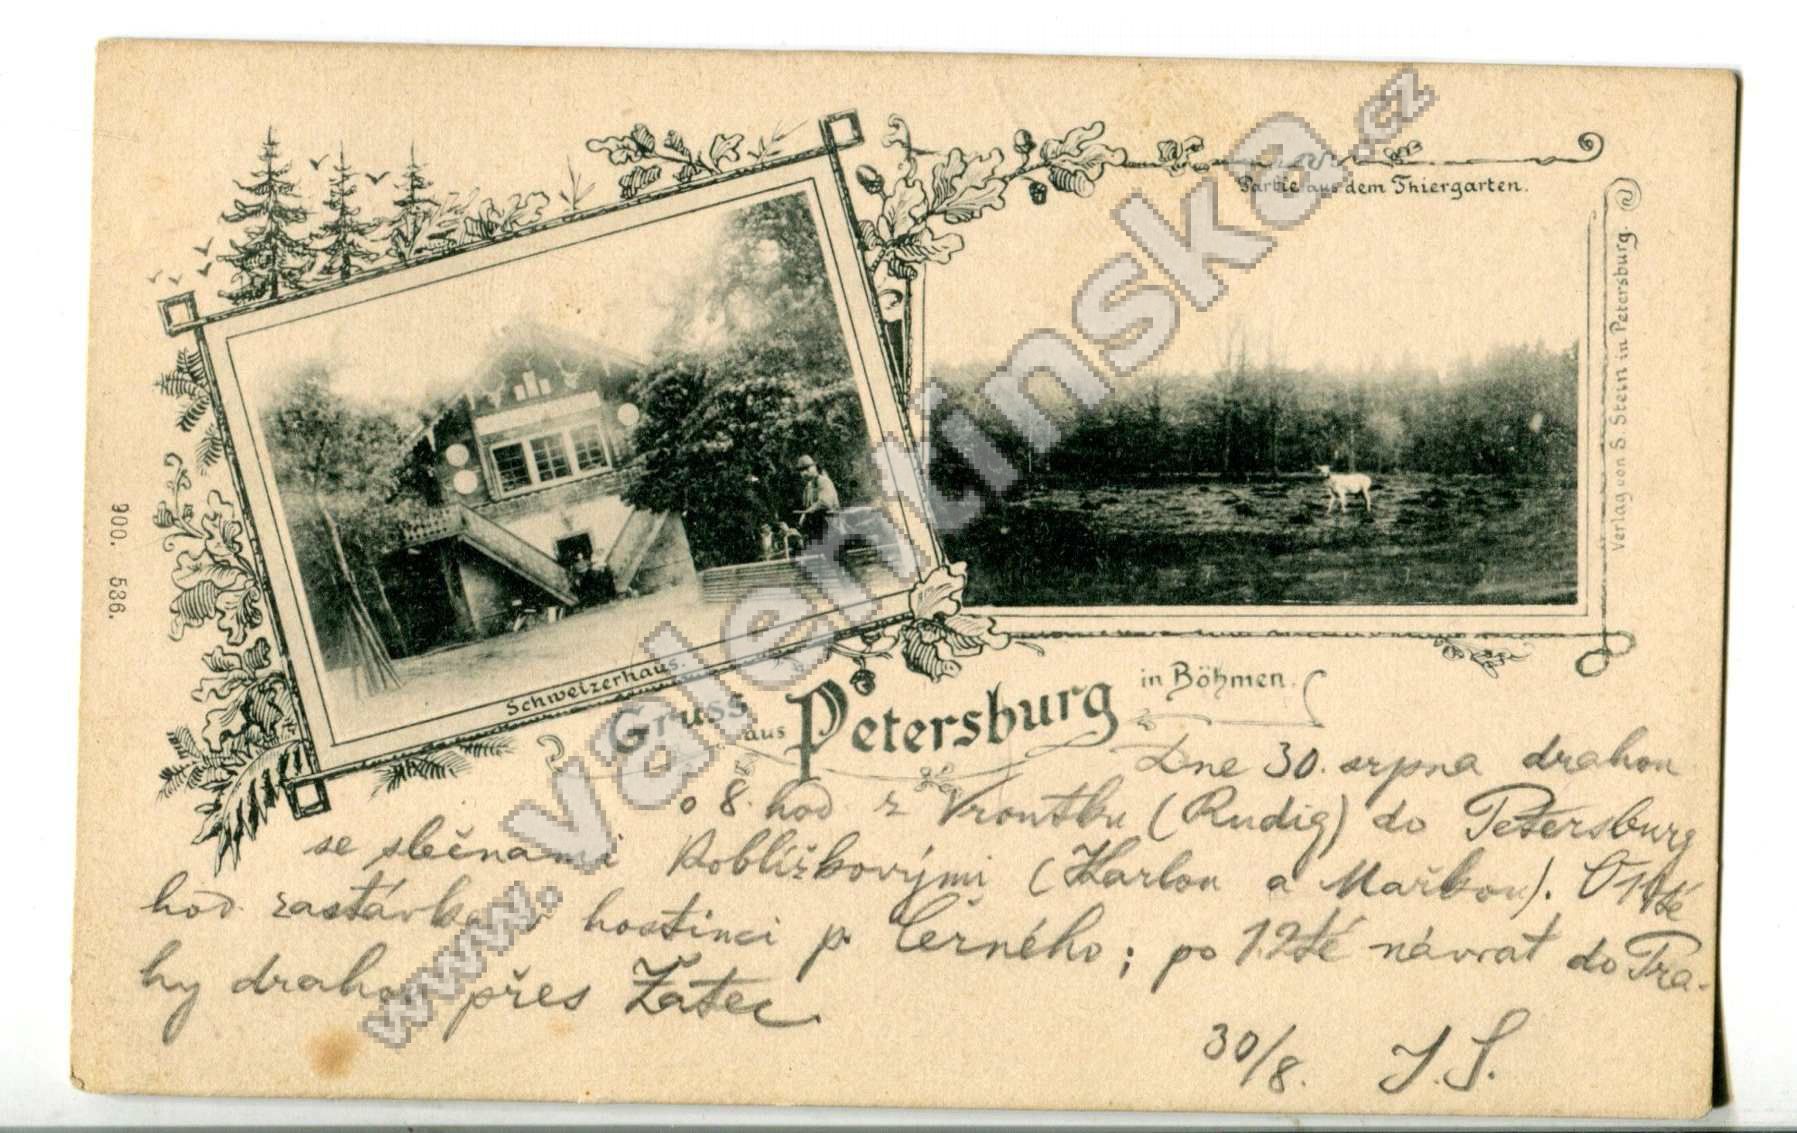 Partie aus dem Thiergarten.
Verlag von S. Stein in Petersburg.
900. 536.
Schweizerhaus.
Gruss aus Petersburg in Böhmen.
Dne 30. srpna drahou
o 8. hod z Vroutku (Rudig) do Petersburg
se slečnami Koblížkovými (Karlou a Mařkou). O 10té
hod. zastávka v hostinci p. Černého; po 12té návrat do Pra-
hy drahou přes Žatec
30/8. J. S.
www.Valentinska.cz